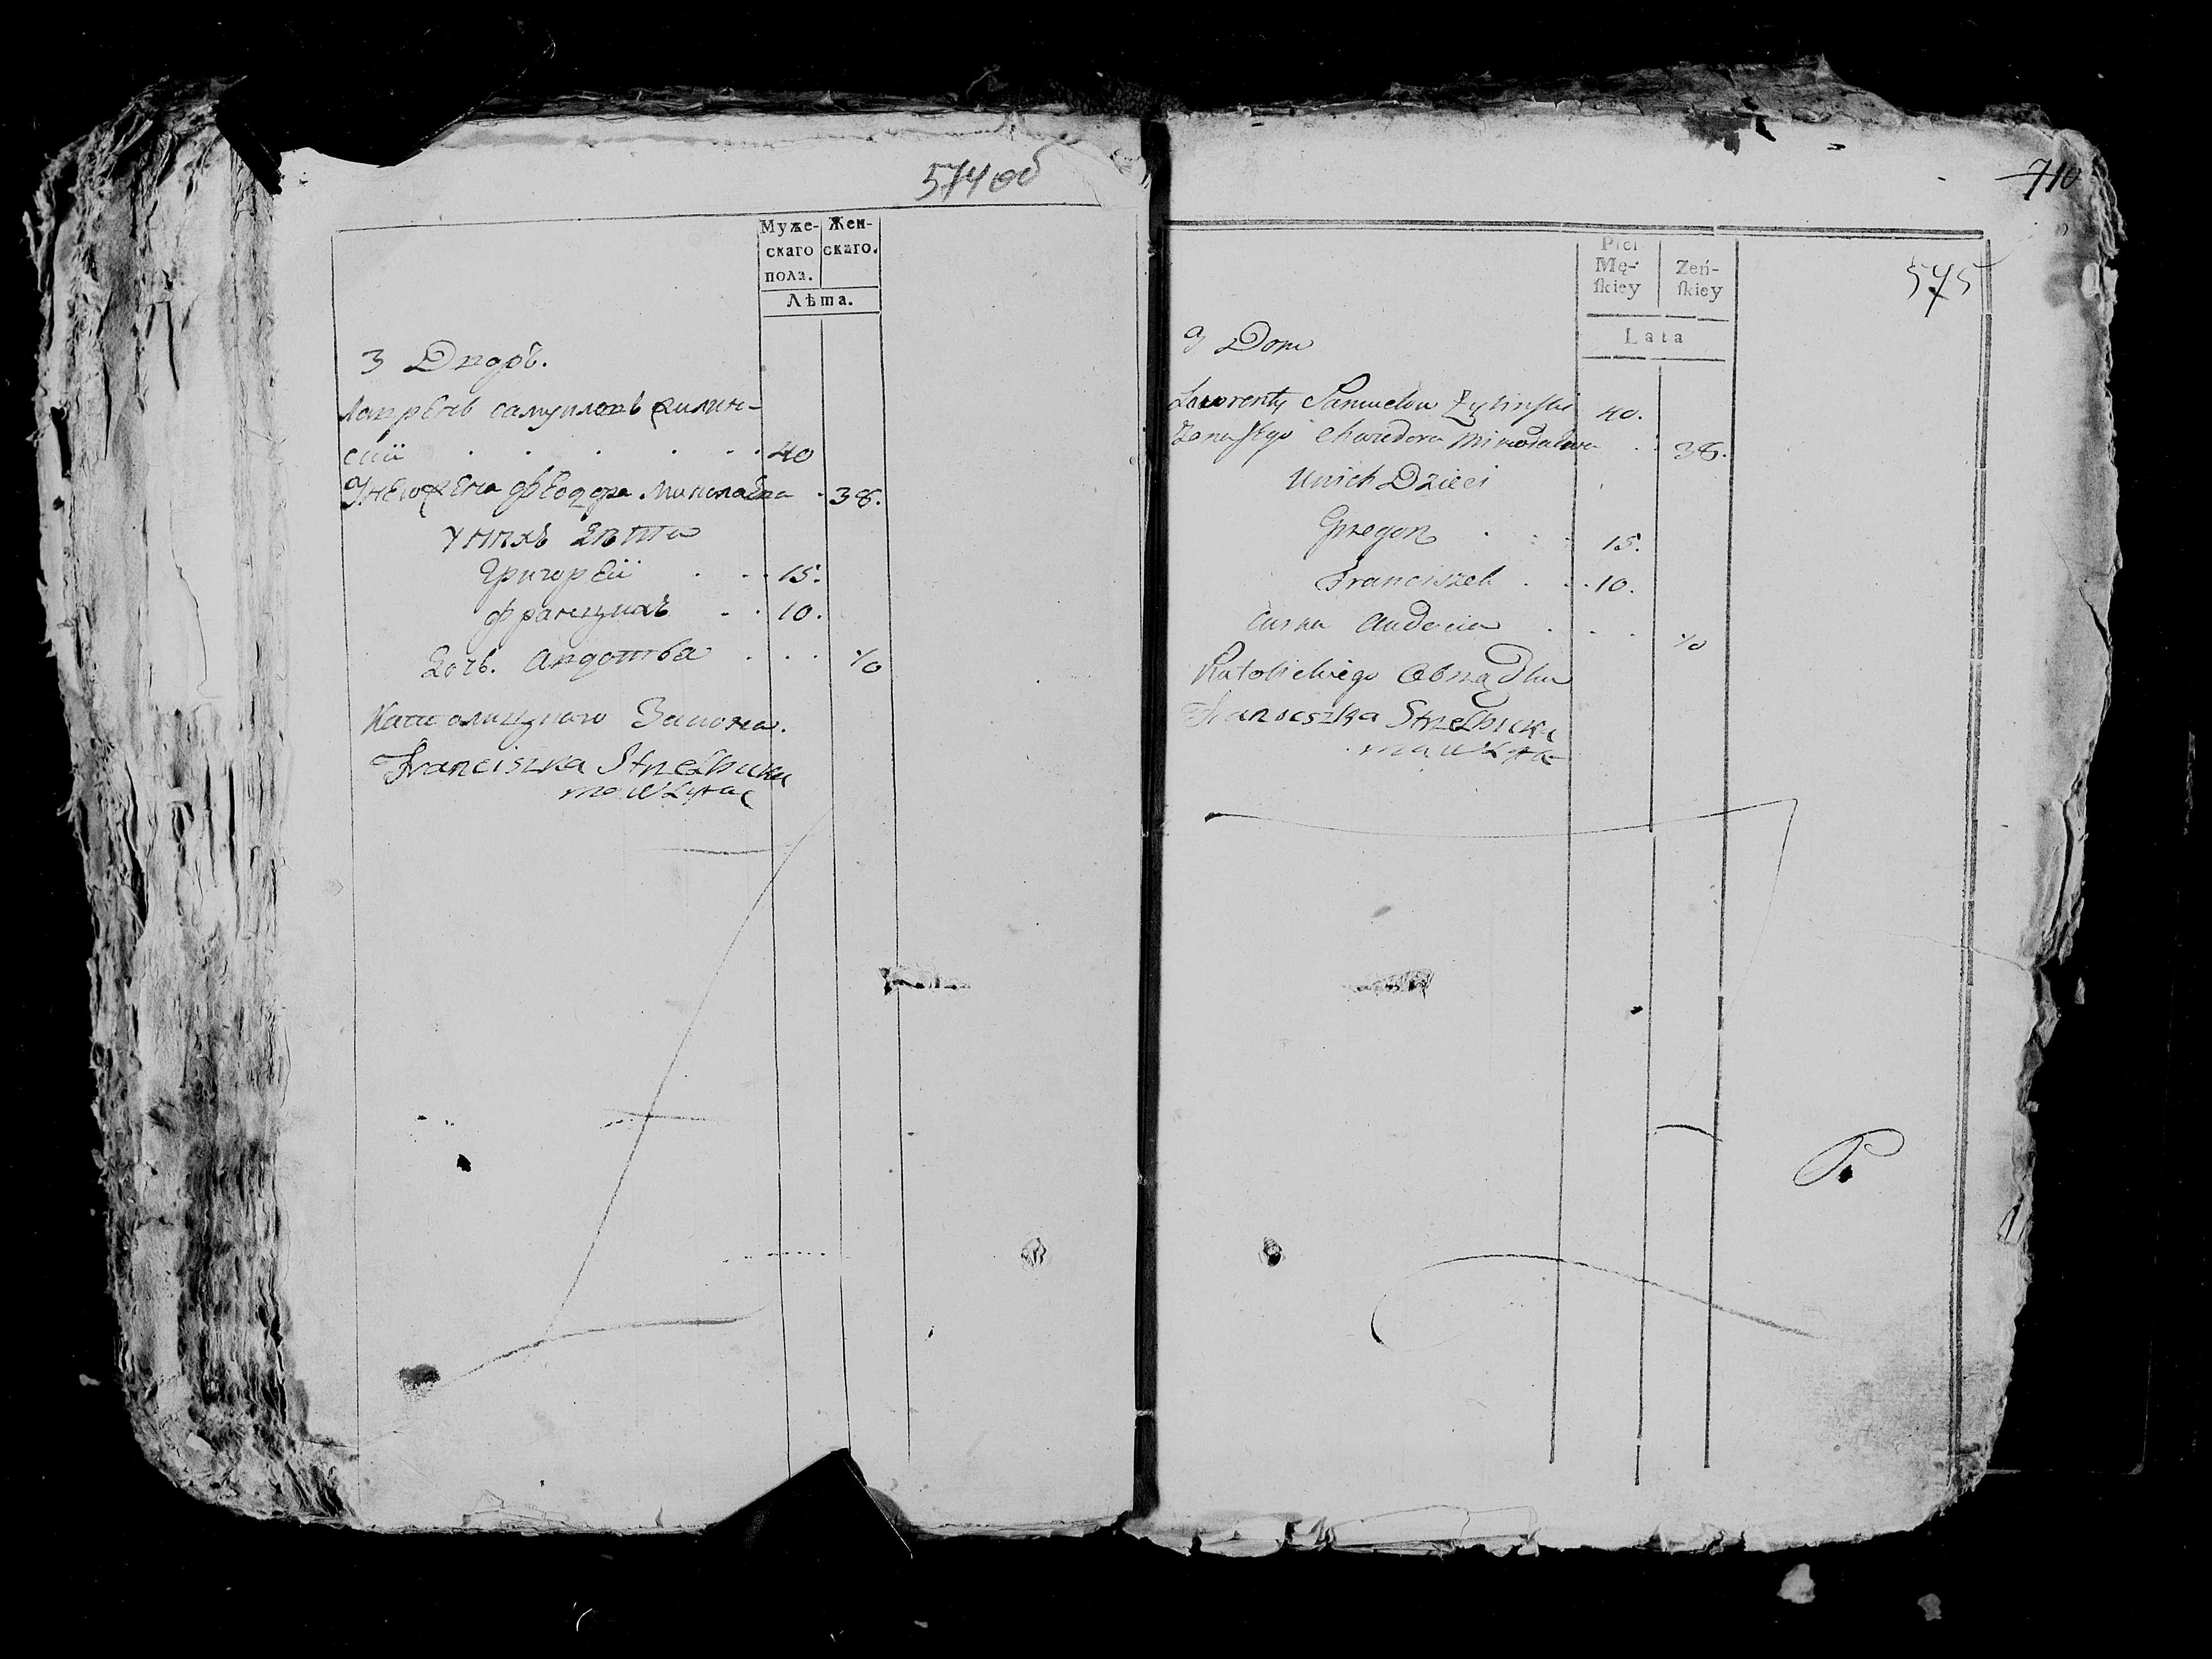 574 об
Муже-
скаго
пола.
Жен-
скаго.
Лѣта.
3 Дворъ.
Лаврень самуиловъ жилин-
скii 40
У него жена феодора Миколаева 38.
У нихъ дѣти
Григорей 15.
францишь 10.
Дочь. авдотья 10
Католицкаго Закона.
Franciszka Strzelbicka
710
575
Płci
Mę-
ſkiey
Zeń-
ſkiey
Lata
3 Dom
Lawrenty Samuelow Zylinſki 40.
Zona Jego Chwedora Mikołaiowa 38.
U nich Dzieci
Grzegorz 15.
Franciszek 10.
Curka Audocia 10
Katolickiego Obrządku
Franciszka Strzelbicka